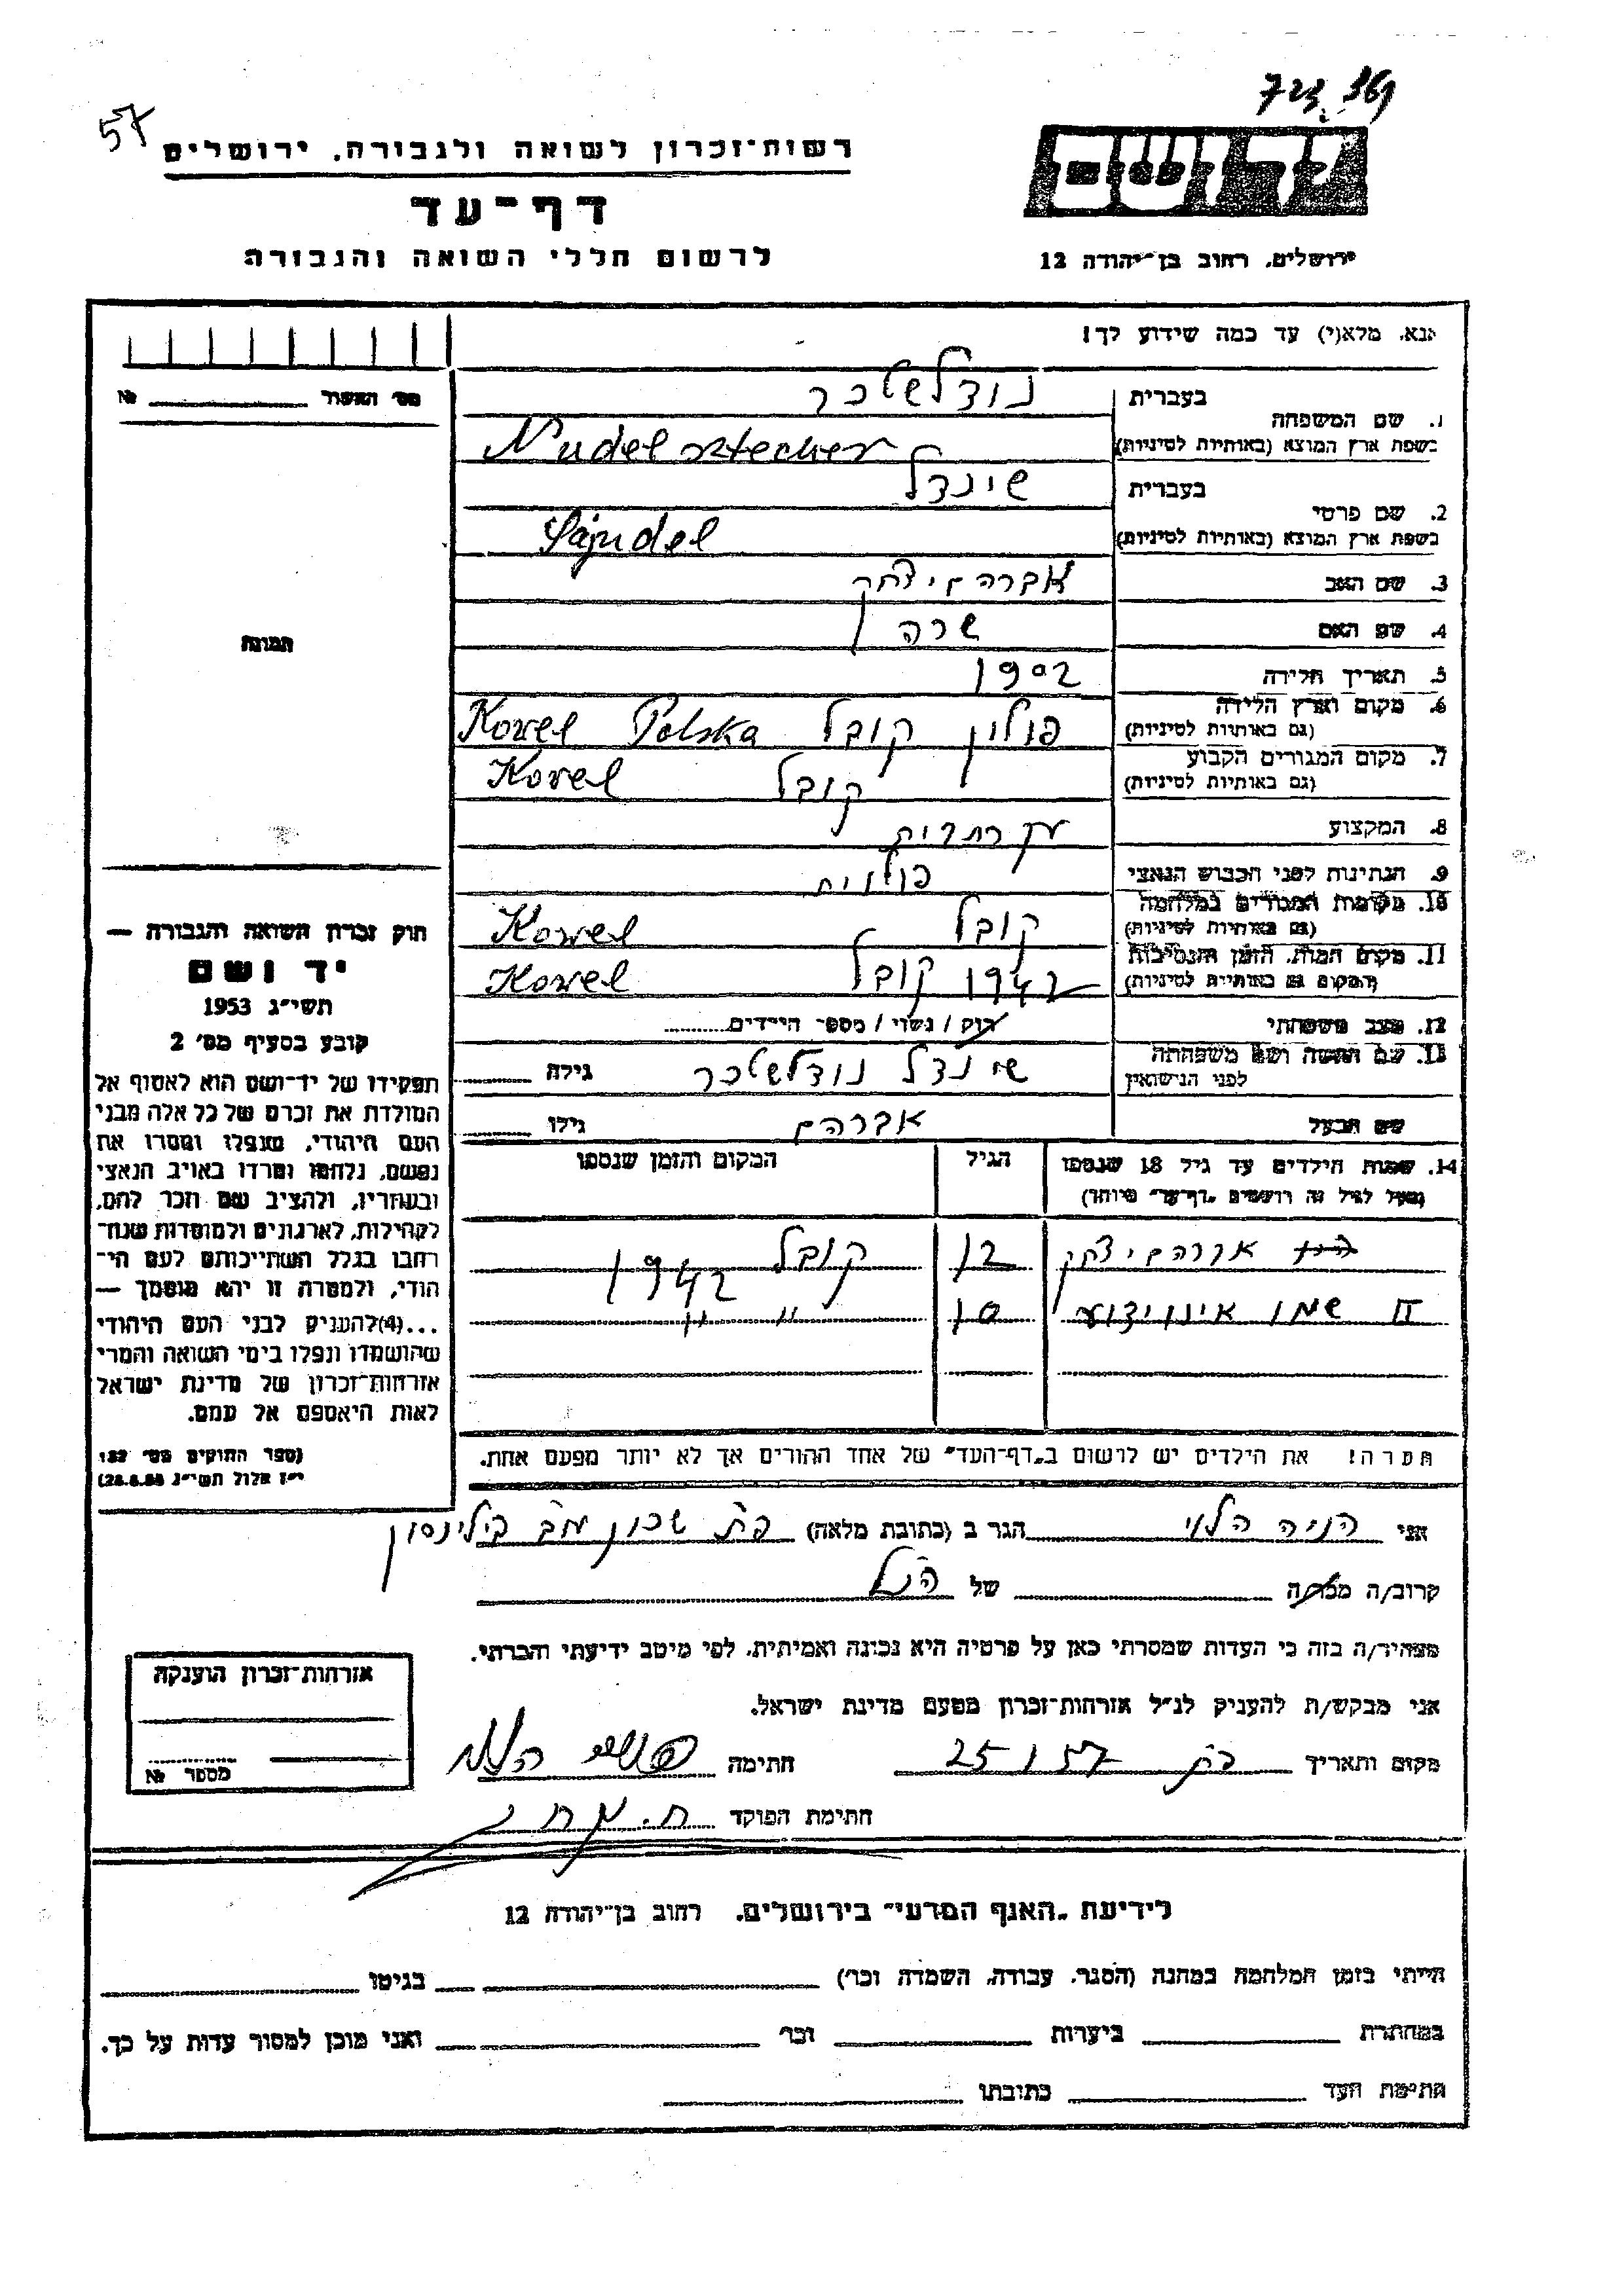 723, 369
57
רשות־זכרון לשואה ולגבורה. ירושלים
יד ושם
דף־עד
לרשום חללי השואה והגבורה
ירושלים. רחוב בן־יהודה 12
נא. מלא(י) עד כמה שידוע לך!
מס׳ האשור № 
1. שם המשפחה
בעברית נודלשטכר
בשפת ארץ המוצא (באותיות לטיניות) Nudelsztecher
2. שם פרטי
בעברית שינדל
בשפת ארץ המוצא (באותיות לטיניות) Szajndel
3. שם האב אברהם יצחק
4. שם האם שרה
5. תאריך הלידה 1902
6. מקום וארץ הלידה פולין קובל Polska Kowel
(גם באותיות לטיניות)
7. מקום המגורים הקבוע קובל Kovel
(גם באותיות לטיניות)
8. המקצוע עקרת בית
9. הנתינות לפני הכבוש הנאצי פולנית
10. מקומות המגורים במלחמה קובל Kowel
(גם באותיות לטיניות)
11. מקום המות. הזמן והנסיבות 1942 קובל Kowel
(המקום גם באותיות לטיניות)
12. מצב משפחתי רוק / נשוי / מספר הילדים
13. שם האשה ושם משפחתה שינדל נודלשטכר גילה
לפני הנישואין
שם הבעל אברהם גילו
תמונה
14. שמות הילדים עד גיל 18 שנספו הגיל המקום והזמן שנספו
(מעל לגיל זה רושמים „דף־עד״ מיוחד)
אברהם יצחק 12 קובל 1942
10 " "
הערה! את הילדים יש לרשום ב„דף־העד״ של אחד ההורים אך לא יותר מפעם אחת.
חוק זכרון השואה והגבורה —
יד ושם
תשי״ג 1953
קובע בסעיף מס׳ 2
תפקידו של יד־ושם הוא לאסוף אל
המולדת את זכרם של כל אלה מבני
העם היהודי, שנפלו ומסרו את
נפשם, נלחמו ומרדו באויב הנאצי
ובעוזריו, ולהציב שם וזכר להם,
לקהילות, לארגונים ולמוסדות שנח־
רבו בגלל השתייכותם לעם הי־
הודי, ולמטרה זו יהא מוסמך —
...(4)להעניק לבני העם היהודי
שהושמדו ונפלו בימי השואה והמרי
אזרחות־זכרון של מדינת ישראל
לאות היאספם אל עמם.
(ספר החוקים מס׳ 132
י״ז אלול תשי״ג 28.8.53)
אני הניה הלוי הגר ב (כתובת מלאה) פת שכון בילינסון
קרוב/ה מכר/ה של הנ״ל
מצהיר/ה בזה כי העדות שמסרתי כאן על פרטיה היא נכונה ואמיתית. לפי מיטב ידיעתי והכרתי.
אני מבקש/ת להעניק לנ״ל אזרחות־זכרון מטעם מדינת ישראל.
אזרחות־זכרון הוענקה
מספר №
מקום ותאריך פת 25 1 57 חתימה
חתימת הפוקד
לידיעת „האגף המדעי״ בירושלים. רחוב בן־יהודה 12
הייתי בזמן המלחמה במחנה (הסגר. עבודה. השמדה וכר׳) בגיטו
במחתרת ביערות וכר׳ ואני מוכן למסור עדות על כך.
חתימת העד כתובתו